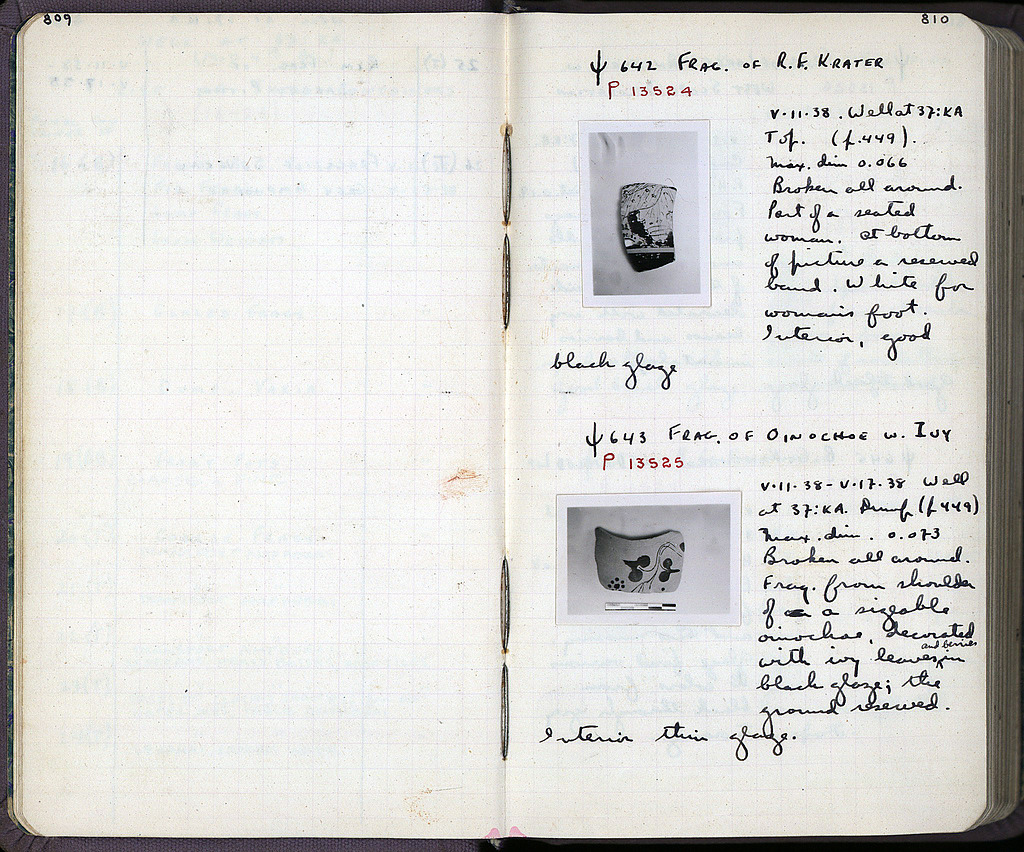 809
810
ψ 642 FRAG. OF R.F. KRATER
P 13524
V·11·38. Well at 37:KA
Top. (p.449).
Max. dim 0.066
Broken all around.
Part of a seated
woman. At bottom
of picture a reserved
band. White for
woman's foot.
Interior, good
black glaze
ψ 643 FRAG. OF OINOCHOE W. IVY
P 13525
V·11·38 - V·17·38 Well
at 37:KA. Dump (p.449)
Max. dim. 0.073
Broken all around.
Frag. from shoulder
of a sizeable
oinochoe, decorated
and berries
with ivy leaves, in
black glaze; the
ground reserved.
Interior thin glaze.